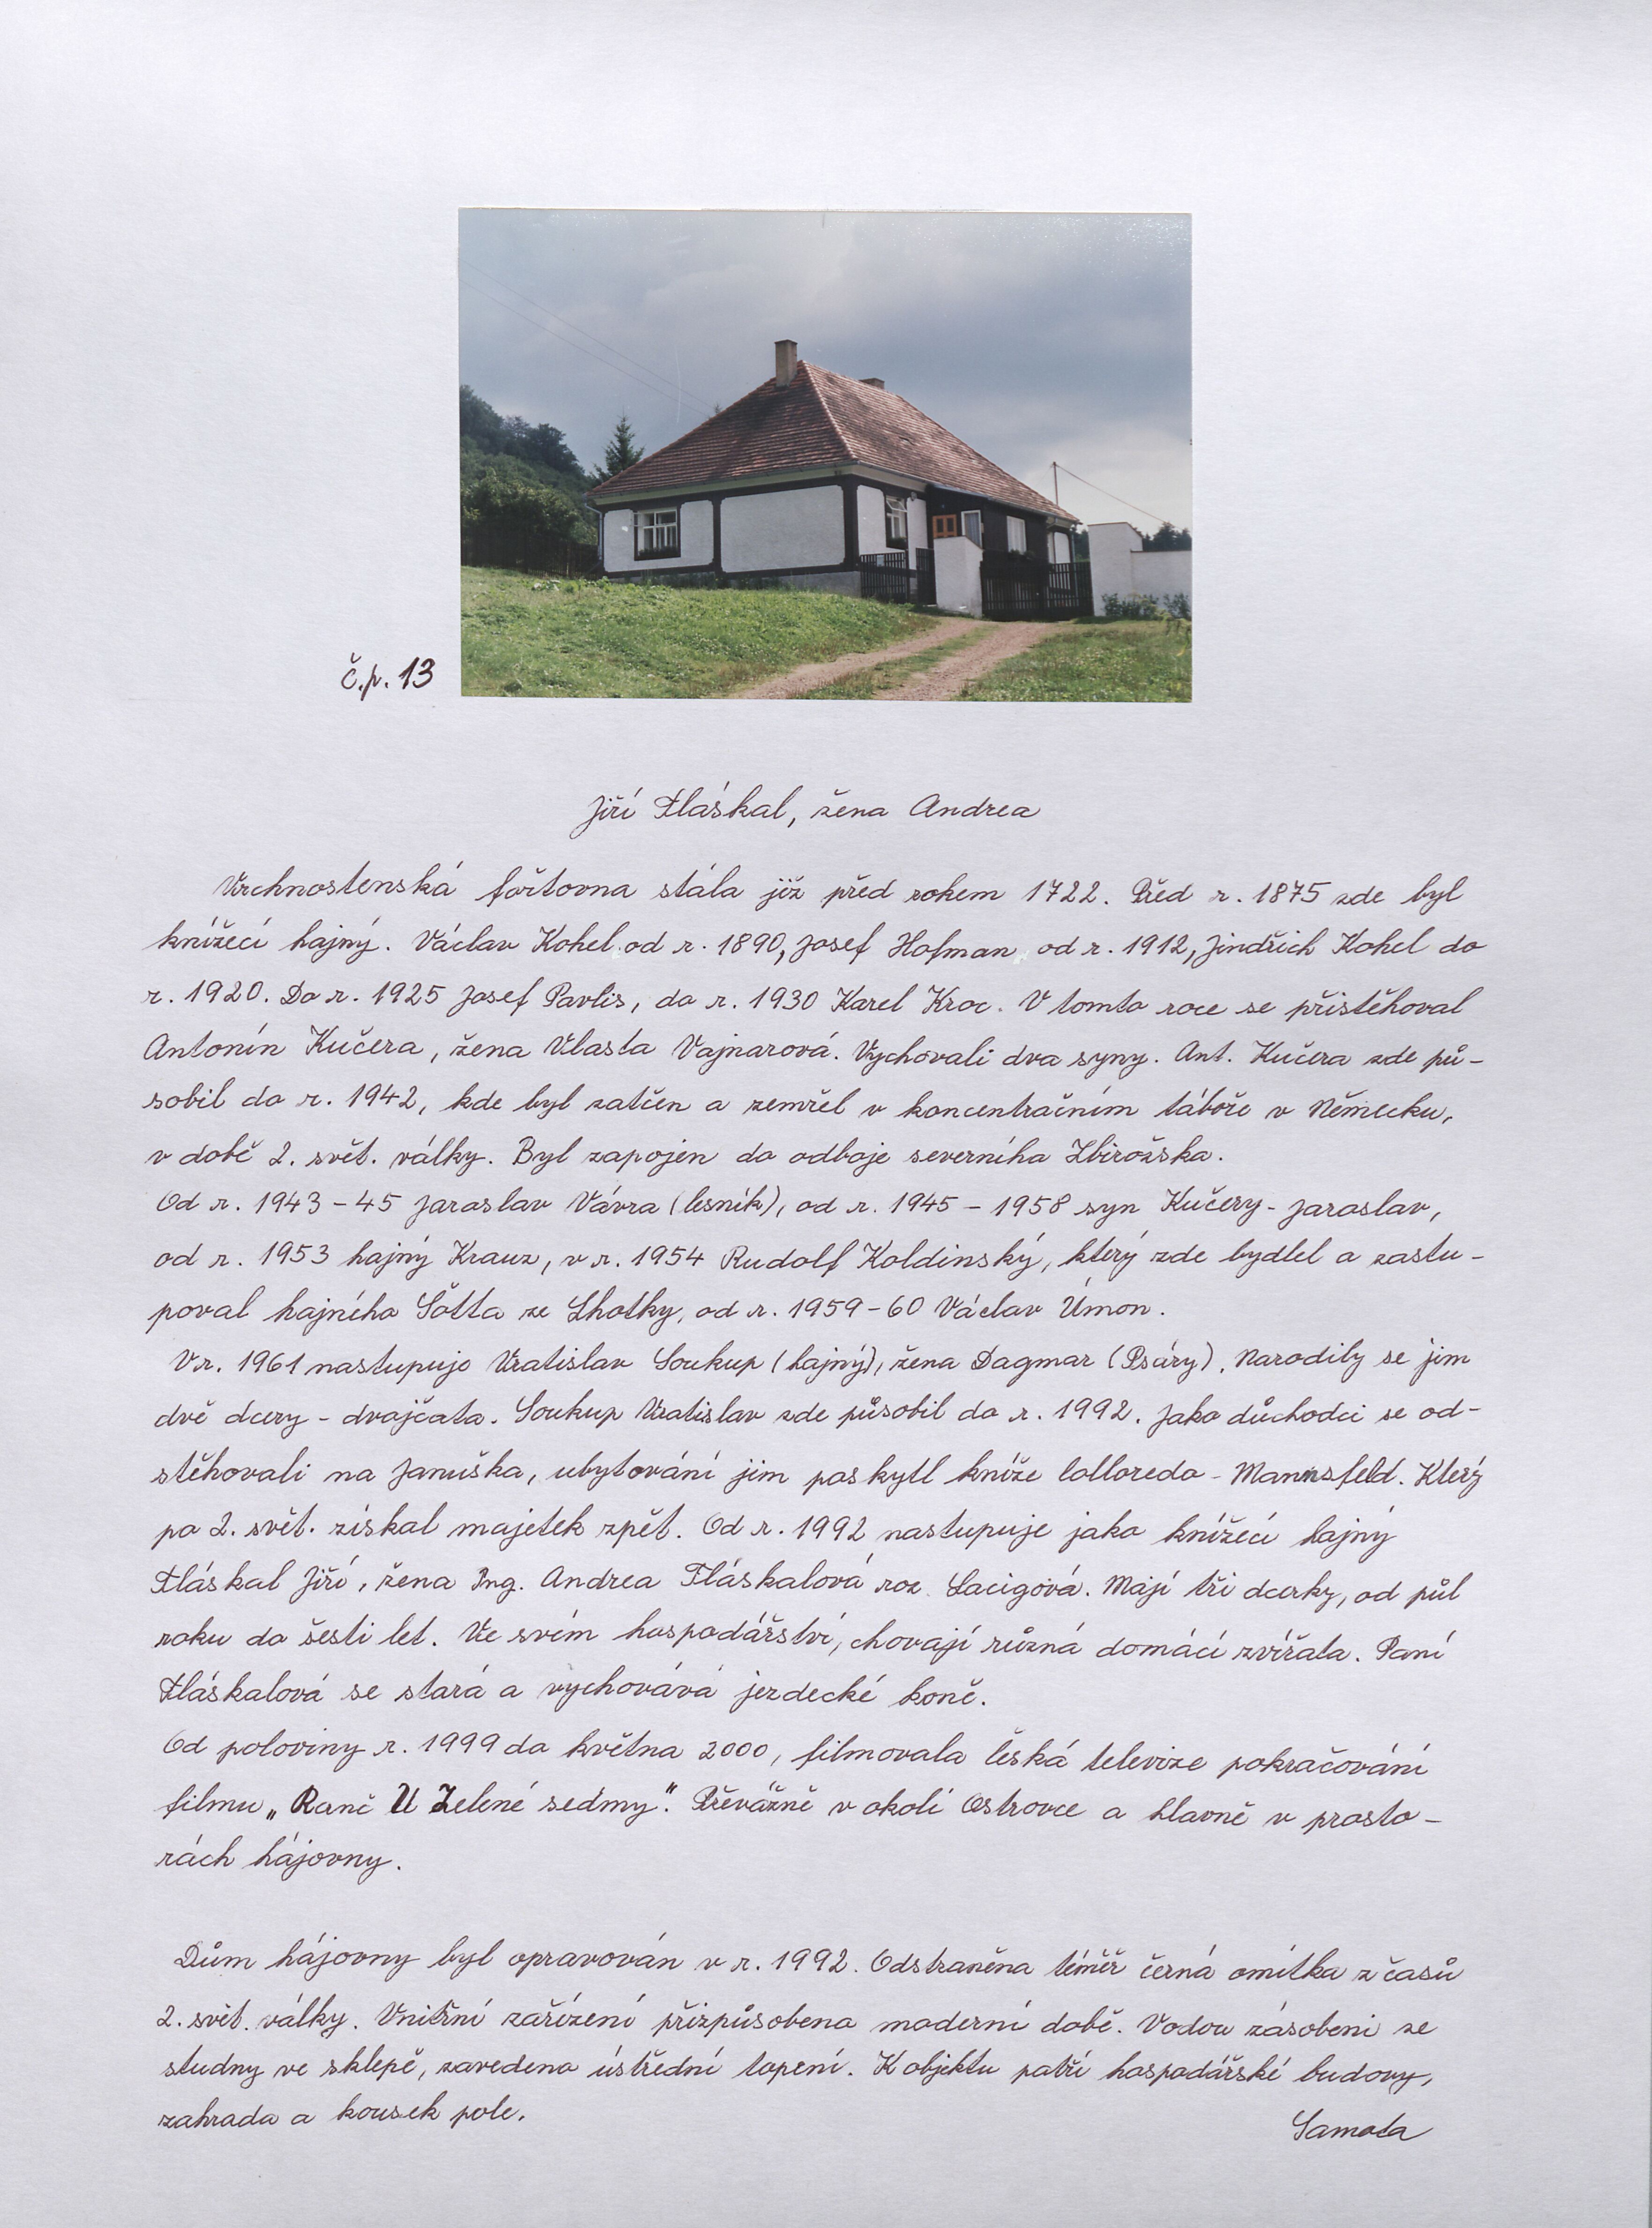 Č.p. 13
Jiří Fláskal, žena Andrea
Vrchnostenská fořtovna stála již před rokem 1722. Před r. 1875 zde byl
knížecí hajný. Václav Kohel od r. 1890, Josef Hofman od r. 1912, Jindřich Kohel do
r. 1920. Do r. 1925 Josef Pavlis, do r. 1930 Karel Kroc. V tomto roce se přistěhoval
Antonín Kučera, žena Vlasta Vajnarová. Vychovali dva syny. Ant. Kučera zde pů-
sobil do r. 1942, kde byl zatčen a zemřel v koncentračním táboře v Německu,
v době 2. svět. války. Byl zapojen do odboje severního Zbirožska.
Od r. 1943 - 45 Jaroslav Vávra (lesník), od r. 1945 - 1958 syn Kučery - Jaroslav,
od r. 1953 hajný Krauz, v r. 1954 Rudolf Koldinský, který zde bydlel a zastu-
poval hajného Šotta ze Lhotky, od r. 1959-60 Václav Úmon.
V r. 1961 nastupuje Vratislav Soukup (hajný), žena Dagmar (Psáry). Narodily se jim
dvě dcery - dvojčata. Soukup Vratislav zde působil do r. 1992. Jako důchodci se od-
stěhovali na Januška, ubytování jim poskytl kníže Colloredo - Mannsfeld. Který
po 2. svět. získal majetek zpět. Od r. 1992 nastupuje jako knížecí hajný
Fláskal Jiří, žena Ing. Andrea Fláskalová roz. Lacigová. Mají tři dcerky, od půl
roku do šesti let. Ve svém hospodářství, chovají různá domácí zvířata. Paní
Fláskalová se stará a vychovává jezdecké koně.
Od poloviny r. 1999 do května 2000, filmovala česká televize pokračování
filmu „Ranč U Zelené sedmy". Převážně v okolí Ostrovce a hlavně v prosto-
rách hájovny.
Dům hájovny byl opravován v r. 1992. Odstraněna téměř černá omítka z časů
2. svět. války. Vnitřní zařízení přizpůsobeno moderní době. Vodou zásobeni ze
studny ve sklepě, zavedeno ústřední topení. K objektu patří hospodářské budovy,
zahrada a kousek pole.
Samota